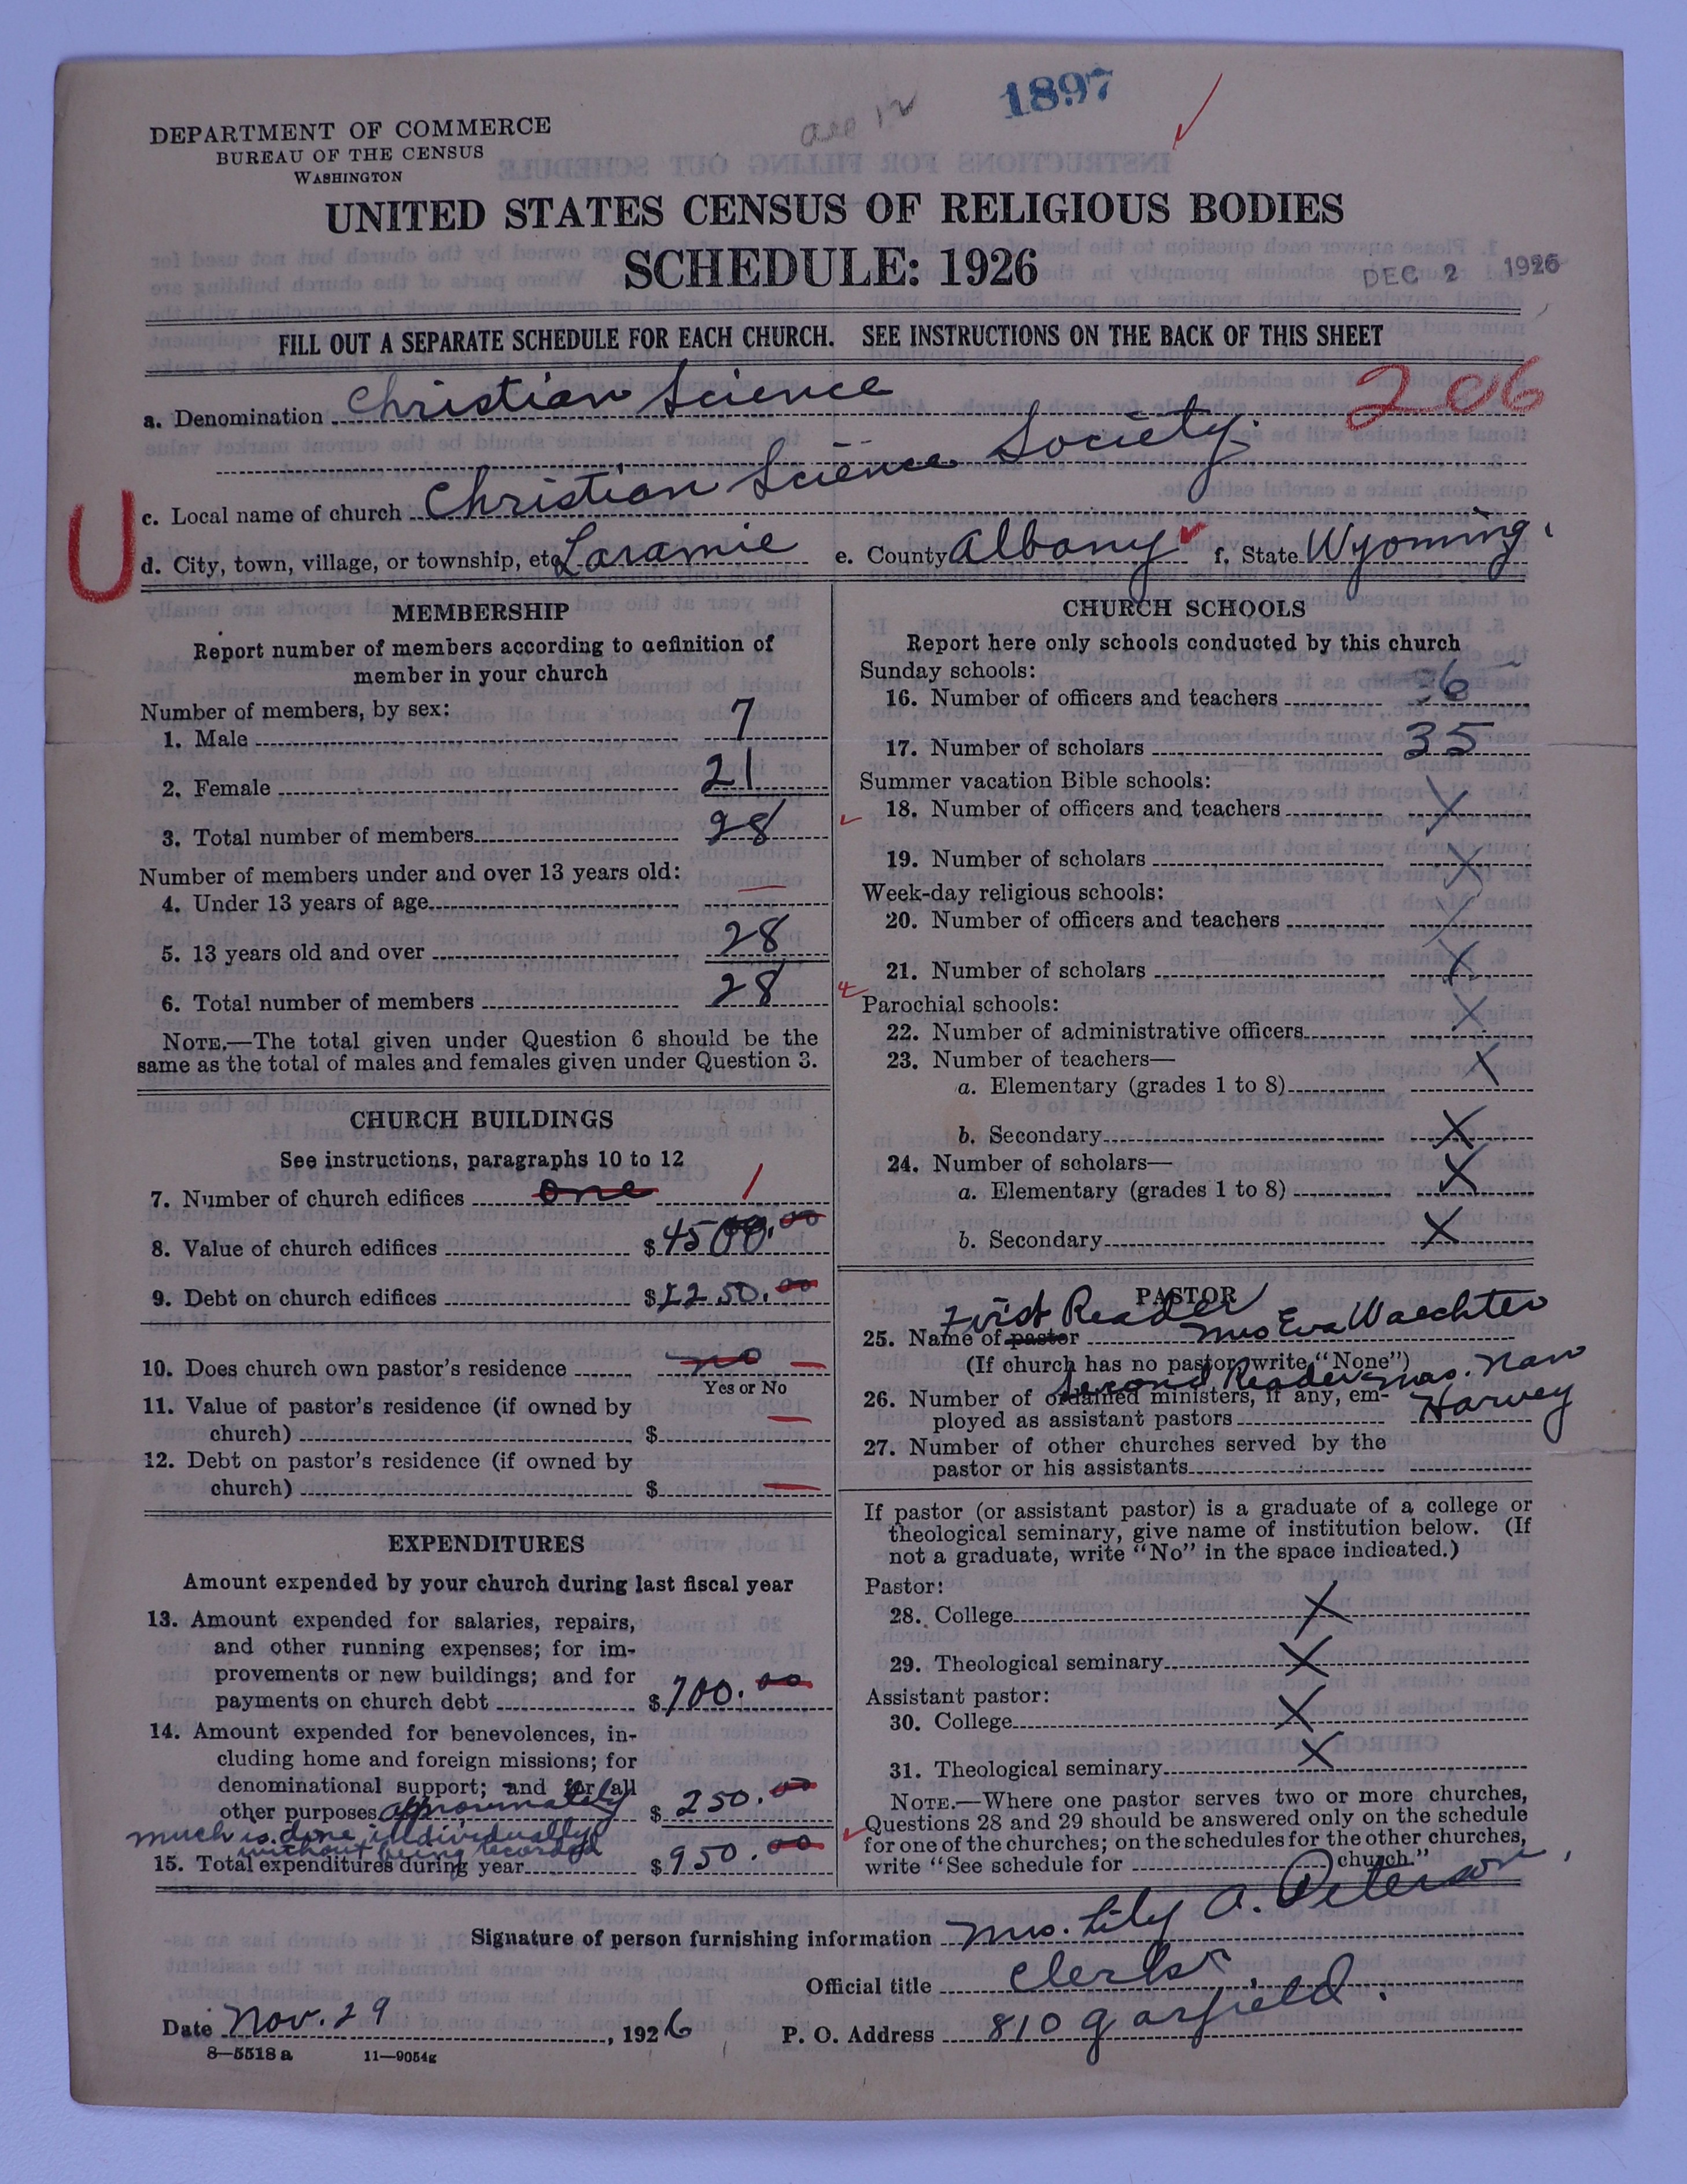 1897
DEPARTMENT OF COMMERCE
BUREAU OF THE CENSUS
WASHINGTON
UNITED STATES CENSUS OF RELIGIOUS BODIES
SCHEDULE: 1926
DEC 2 1926
FILL OUT A SEPARATE SCHEDULE FOR EACH CHURCH. SEE INSTRUCTIONS ON THE BACK OF THIS SHEET
206
a. Denomination Christian Science
U
c. Local name of church Christian Science Society.
d. City, town, village, or township, etc. Laramie e. County Albany f. State Wyoming.
MEMBERSHIP
Report number of members according to definition of
member in your church
Number of members, by sex:
1. Male 7
2. Female 21
3. Total number of members 28
Number of members under and over 13 years old:
4. Under 13 years of age —
5. 13 years old and over 28
6. Total number of members 28
NOTE.—The total given under Question 6 should be the
same as the total of males and females given under Question 3.
CHURCH BUILDINGS
See instructions, paragraphs 10 to 12
7. Number of church edifices one 1
8. Value of church edifices $4500.00
9. Debt on church edifices $1250.00
10. Does church own pastor's residence no —
Yes or No
11. Value of pastor's residence (if owned by
church) $ —
12. Debt on pastor's residence (if owned by
church) $ —
EXPENDITURES
Amount expended by your church during last fiscal year
13. Amount expended for salaries, repairs,
and other running expenses; for im-
provements or new buildings; and for
payments on church debt $700.00
14. Amount expended for benevolences, in-
cluding home and foreign missions; for
denominational support; and for all
other purposes approximately $250.00
much is done individually
without being recorded
15. Total expenditures during year $950.00
CHURCH SCHOOLS
Report here only schools conducted by this church
Sunday schools:
16. Number of officers and teachers 6
17. Number of scholars 35
Summer vacation Bible schools:
18. Number of officers and teachers X
19. Number of scholars X
Week-day religious schools:
20. Number of officers and teachers X
21. Number of scholars X
Parochial schools:
22. Number of administrative officers X
23. Number of teachers—
a. Elementary (grades 1 to 8) X
b. Secondary X
24. Number of scholars—
a. Elementary (grades 1 to 8) X
b. Secondary X
PASTOR
First Reader
25. Name of pastor Mrs Eva Waechter
(If church has no pastor, write "None")
Second Reader Mrs. Nan
26. Number of ordained ministers, if any, em-
ployed as assistant pastors Harvey
27. Number of other churches served by the
pastor or his assistants
If pastor (or assistant pastor) is a graduate of a college or
theological seminary, give name of institution below. (If
not a graduate, write "No" in the space indicated.)
Pastor:
28. College X
29. Theological seminary X
Assistant pastor:
30. College X
31. Theological seminary X
NOTE.—Where one pastor serves two or more churches,
Questions 28 and 29 should be answered only on the schedule
for one of the churches; on the schedules for the other churches,
write "See schedule for church."
Signature of person furnishing information Mrs. Lily A. Peterson
Official title Clerk.
Date Nov. 29, 1926 P. O. Address 810 Garfield.
8—5518 a 11—9054g